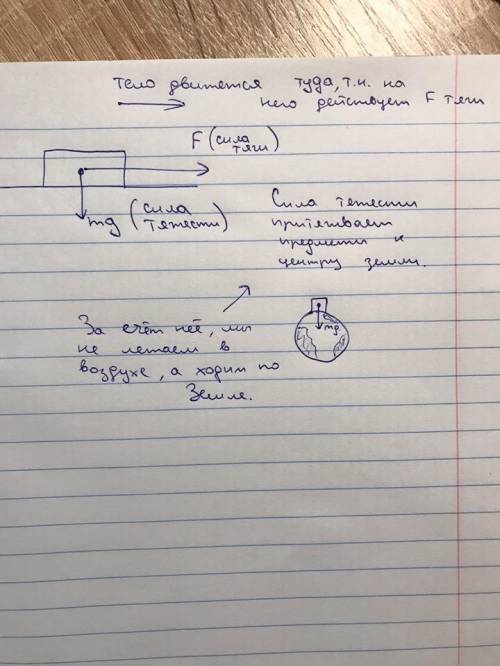 тело движется туда, т.к. на
него действует F тяги
F (сила
тяги)
mg (сила
тяжести)
Сила тяжести
притягивает
предметы к
центру земли.
mg
За счёт неё, мы
не летаем в
воздухе, а ходим по
Земле.